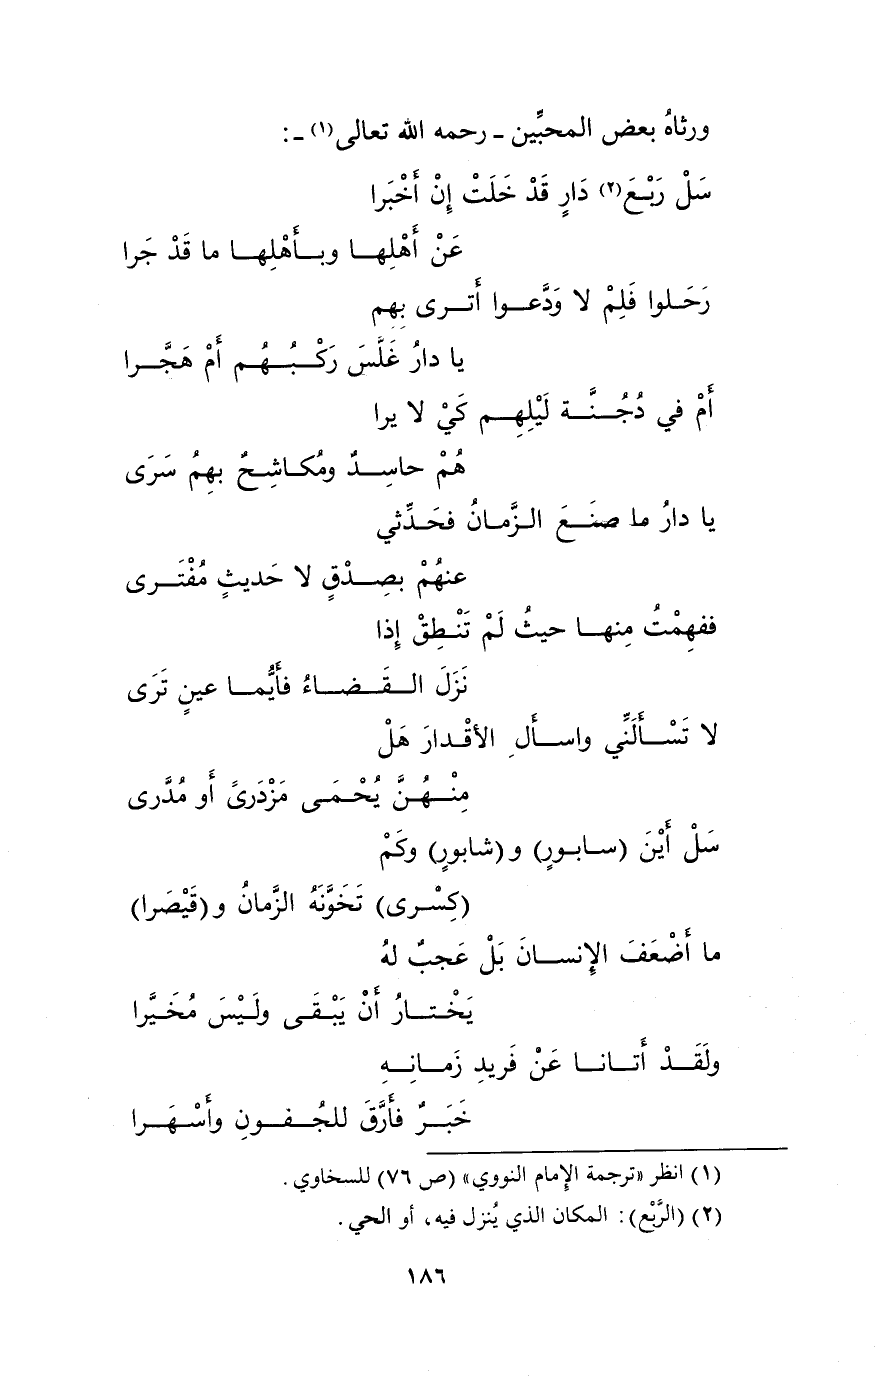 ورثاهُ بعض المحبِّين ـ رحمه الله تعالى(١) ـ:
سَلْ رَبْعَ(٢) دَارٍ قَدْ خَلَتْ إِنْ أَخْبَرا
عَنْ أَهْلِها وبأَهْلِها ما قَدْ جَرا
رَحَلوا فَلِمْ لا وَدَّعوا أَترى بِهِم
يا دارُ غَلَّسَ رَكْبُهُم أَمْ هَجَّرا
أَمْ في دُجُنَّة لَيْلِهِم كَيْ لا يرا
هُمْ حاسِدٌ ومُكاشِحٌ بِهِمُ سَرَى
يا دارُ ما صنَعَ الزَّمانُ فحَدِّثي
عنهُمْ بصِدْقٍ لا حَديثٍ مُفْتَرى
ففهِمْتُ مِنها حيثُ لَمْ تَنْطِقْ إِذا
نَزَلَ القَضاءُ فأَيُّما عينٍ تَرَى
لا تَسْأَلَنِّي واسأَلِ الأقْدارَ هَلْ
مِنْهُنَّ يُحْمَى مَزْدَرىً أَو مُدَّرى
سَلْ أَيْنَ (سابورٍ) و(شابورٍ) وكَمْ
(كِسْرى) تَخَوَّنَهُ الزَّمانُ و(قَيْصَرا)
ما أَضْعَفَ الإِنسانَ بَلْ عَجبٌ لهُ
يَخْتارُ أَنْ يَبْقَى ولَيْسَ مُخَيَّرا
ولَقَدْ أَتانا عَنْ فَريدِ زَمانِهِ
خَبَرٌ فأَرَّقَ للجُفونِ وأَسْهَرا
(١) انظر «ترجمة الإمام النووي» (ص ٧٦) للسخاوي.
(٢) (الرَّبْع): المكان الذي يُنزل فيه، أو الحي.
١٨٦